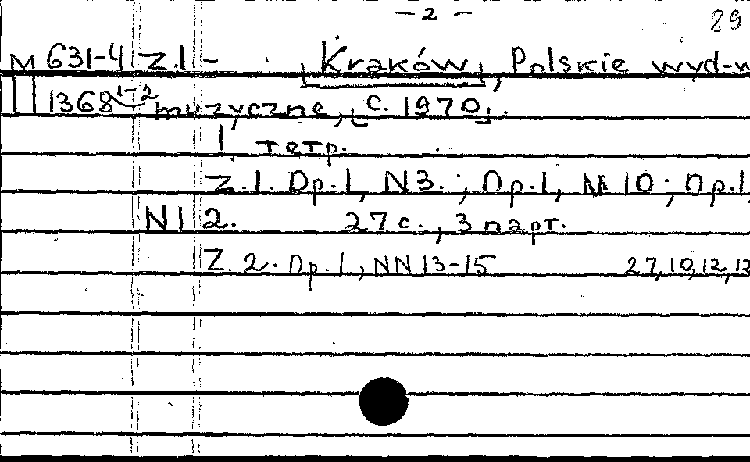 - 2 -
29
М 631-4 Z.1 - Kraków, Polskie wyd-w
II 1368 1-2 muzyczne, c. 1970.
1 тетр.
Z. 1. Ор.1, N 3. ; Ор.1, № 10 ; Ор.1,
N 12. 27 с., 3 парт.
Z. 2. Ор. 1, NN 13-15 27,10,12,13